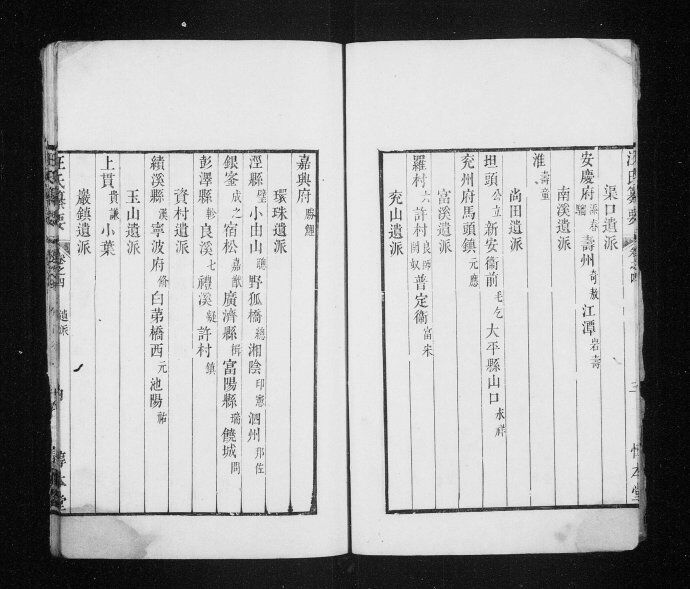 渠口遺派
安慶府 添春 壽州 奇敖 江潭 岩壽
南溪遺派
淮 壽童
尚田遺派
坦頭 公立 新安衞前 毛乞 大平縣山口 永祥
兖州府馬頭鎮 元應
富溪遺派
羅村 許村 良 奴 普定衞 富宋
兖山遺派
卷之四
三
惇本堂
嘉興府 勝鯉
環珠遺派
涇縣 小由山 聰 野狐橋 總 湘陰 印憲 泗州 邦佐
銀峯 成之 宿松 嘉猷 廣濟縣 楫 富陽縣 瑞 饒城 問
彭澤縣 軫 良溪 七 禮溪 凝 許村 鎮
資村遺派
績溪縣 漢 寧波府 脩 白苐橋西 元 池陽 祐
玉山遺派
上貫 貴謙 小葉
巖鎮遺派
汪氏纂要
卷之四
遺派
惇本堂